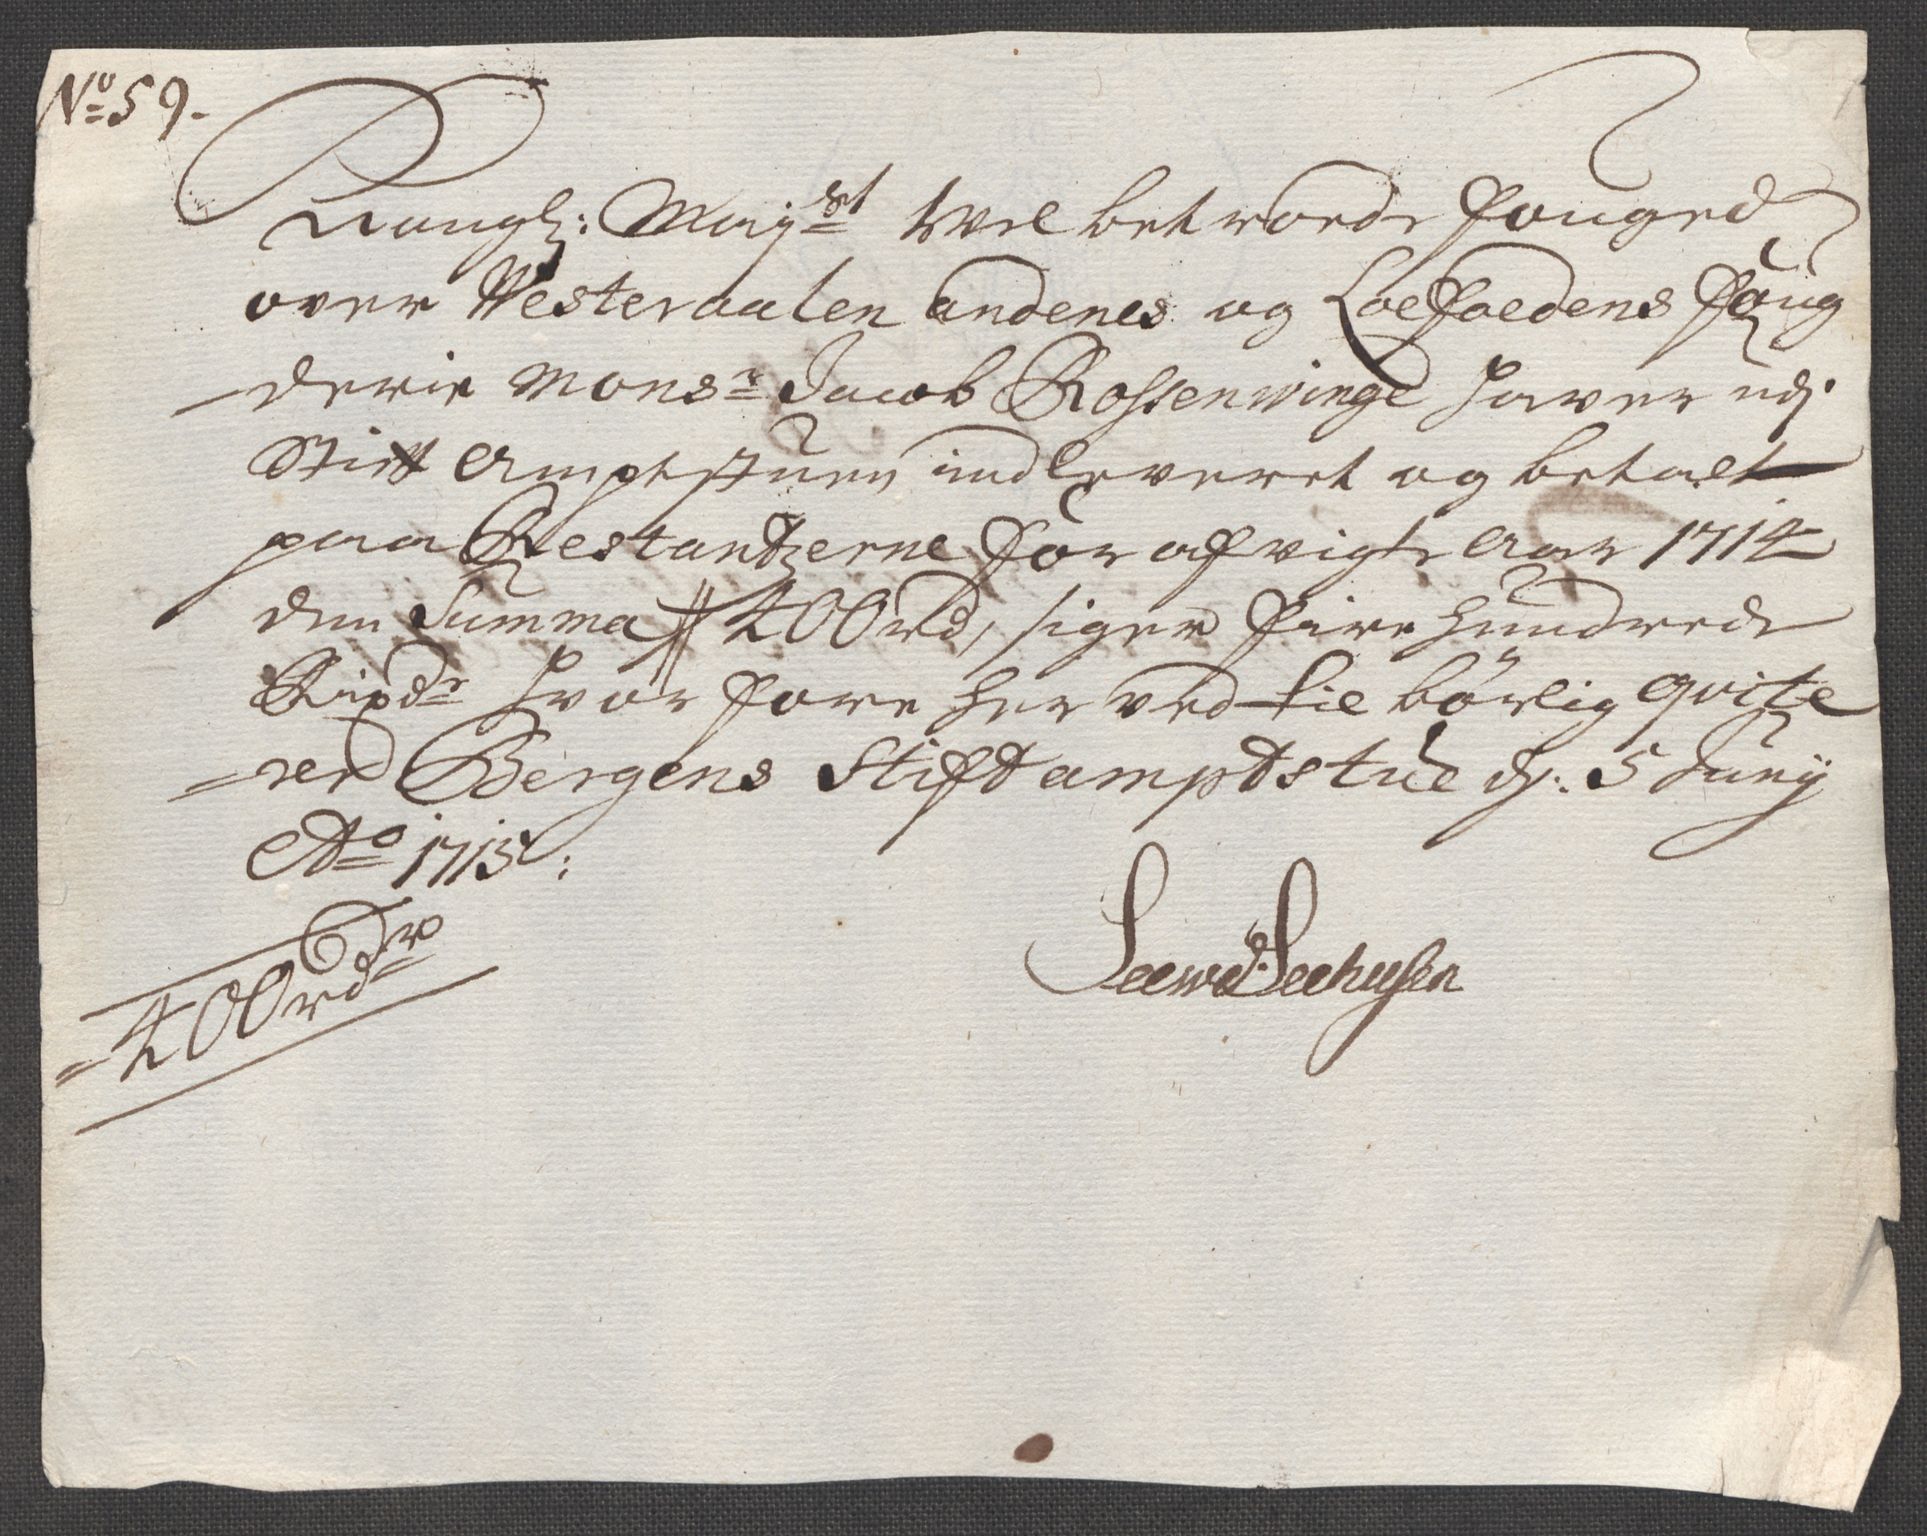 No 59.
Kongl: Mayst Wel betroede Fouged
over Westeraalen andenes og Loefoedens Foug
-derie Monsr Jacob Rossenwinge haver udj
Stift Amptstuen indleveret og betalt
paa Restantzerne for afvigte Aar 1714
den Summa 400 rd, siger fire hundrede
Rixdr hvor fore her ved til børlig qvite
=rer Bergens Stiftamptstue dj: 5 Junij
Ao 1715:
400 rdr
Seehusen